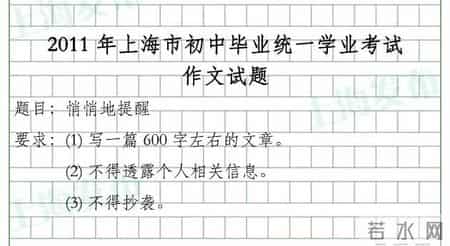 2011 年上海市初中毕业统一学业考试
作文试题
题目：悄悄地提醒
要求：(1) 写一篇 600 字左右的文章。
(2) 不得透露个人相关信息。
(3) 不得抄袭。
上海发布
若水网